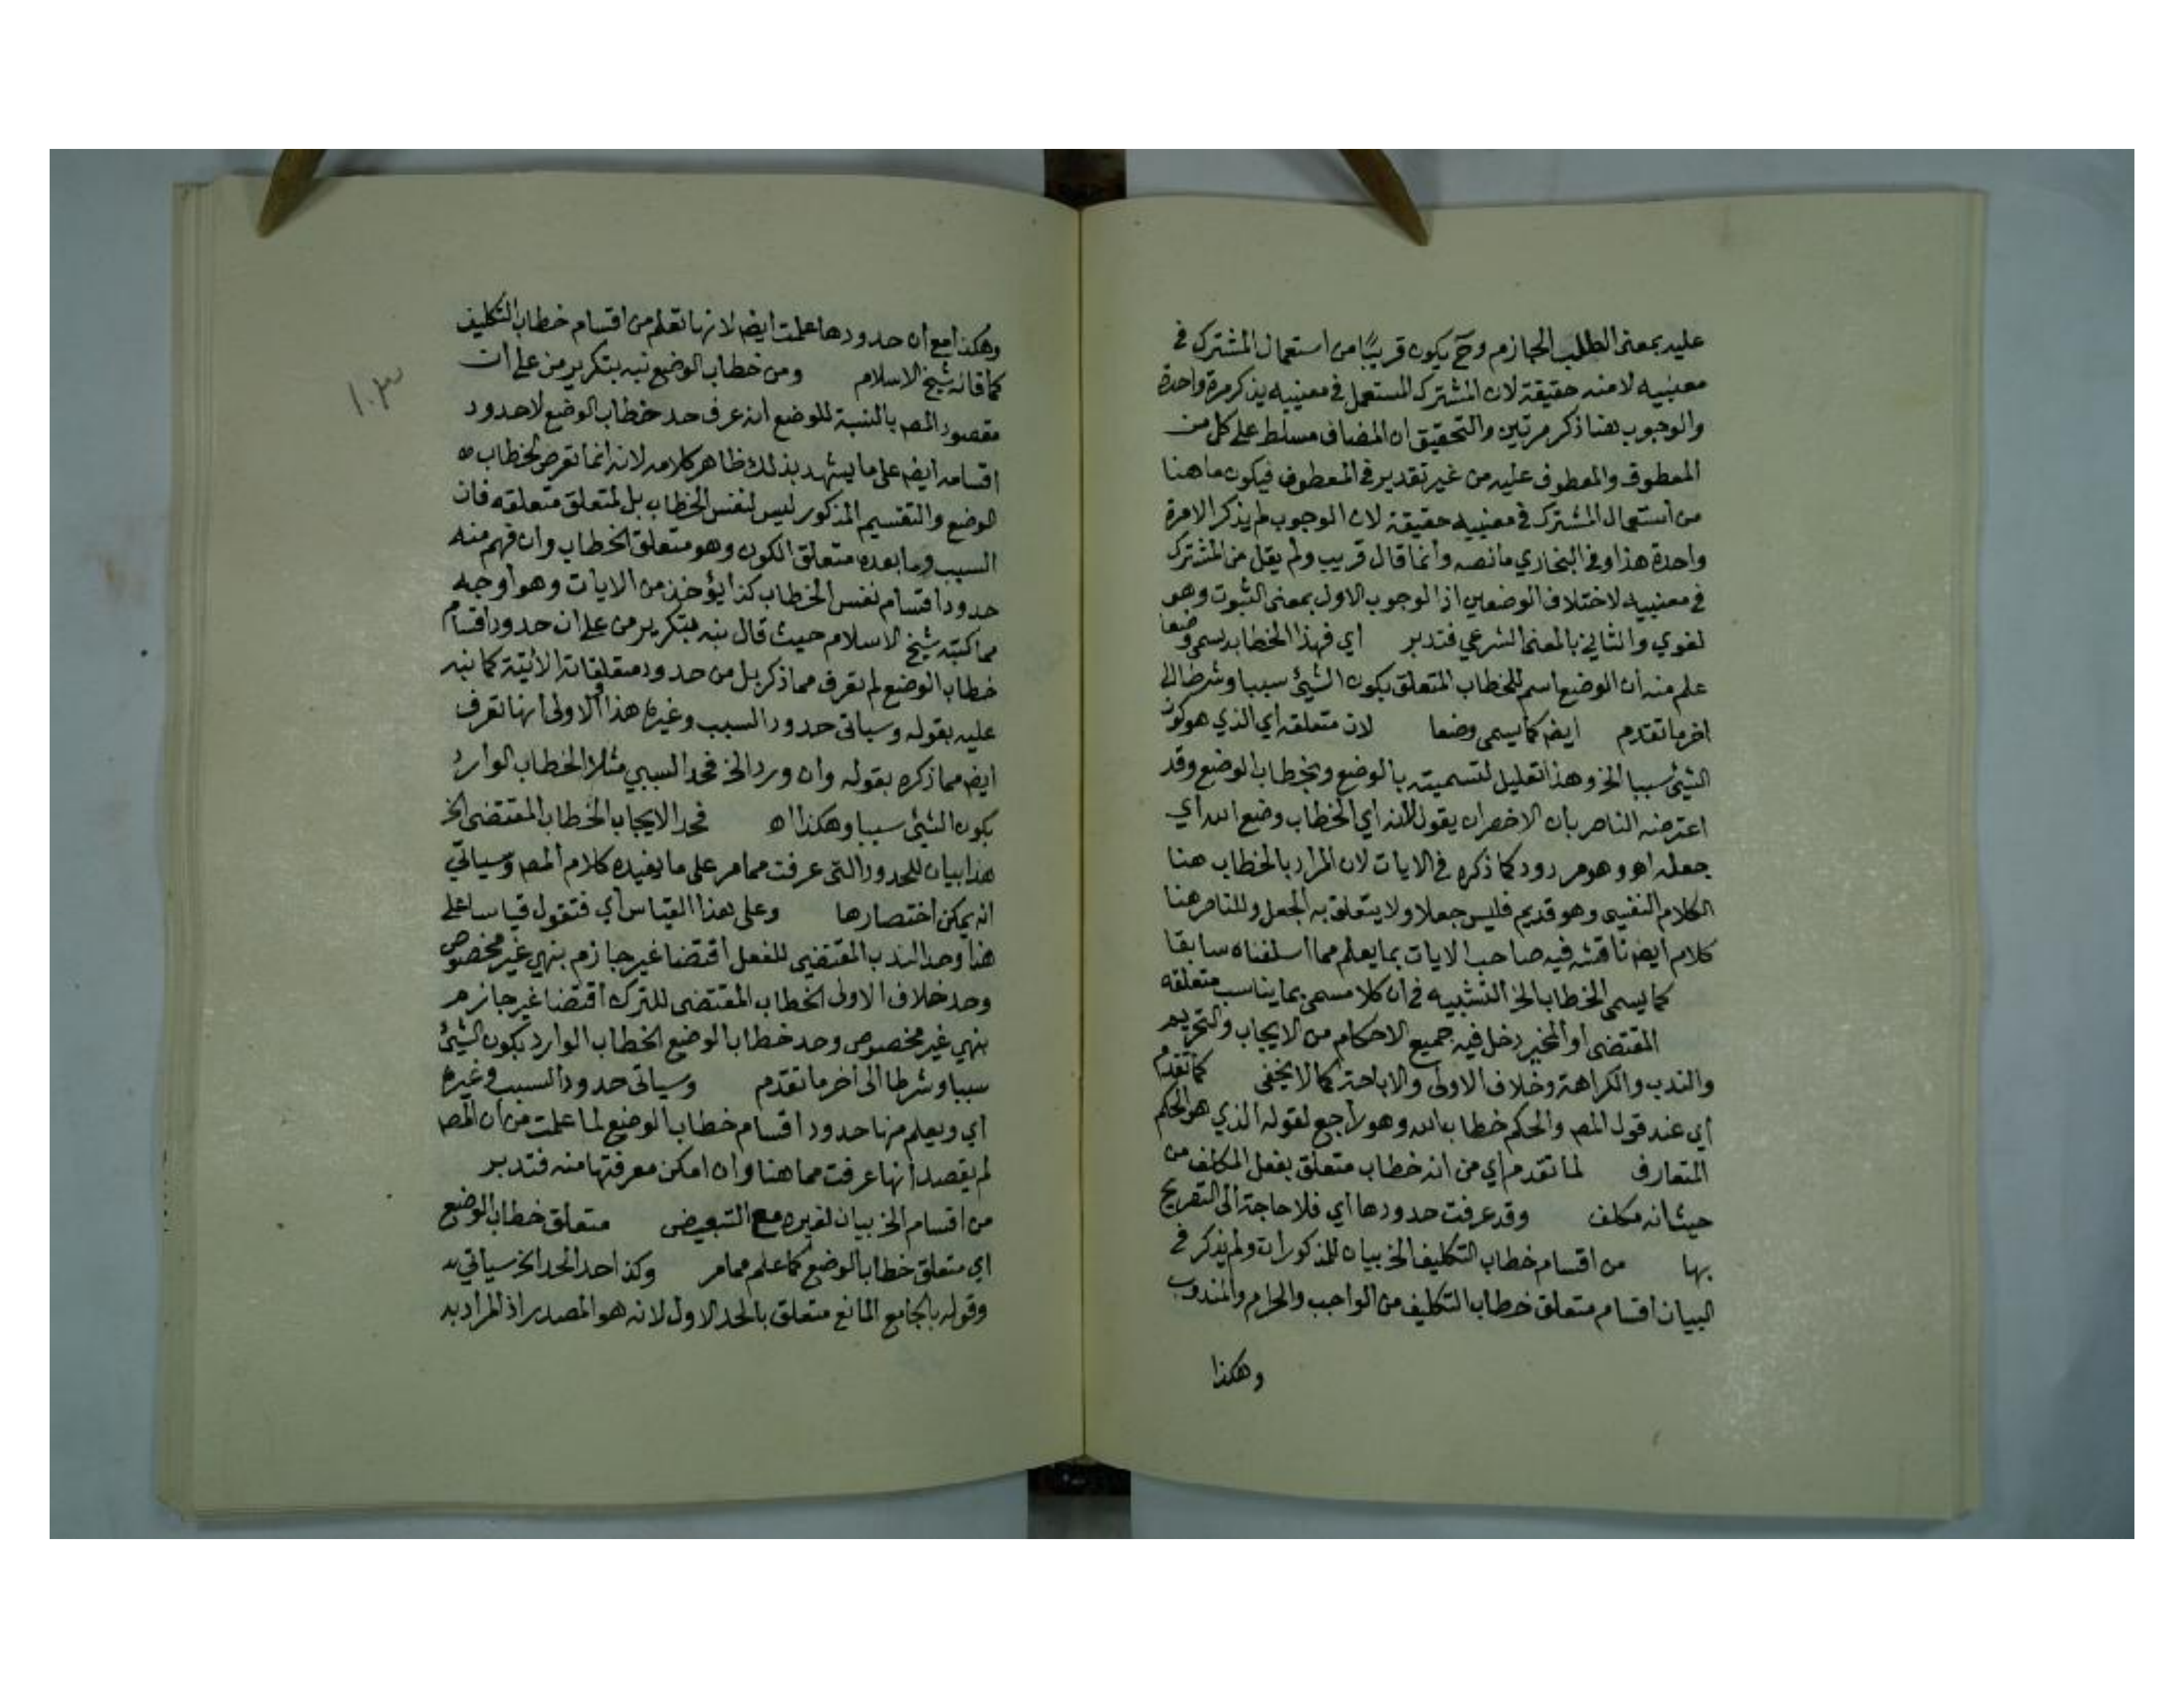 عليه بمعنى الطلب الجازم وح يكون قريبًا من استعمال المشترك في
معنييه لا منه حقيقة لان المشترك المستعمل في معنييه يذكر مرة واحدة
والوجوب هنا ذكر مرتين والتحقيق ان المضاف مسلط على كل من
المعطوف والمعطوف عليه من غير تقدير في المعطوف فيكون ما هنا
من استعمال المشترك في معنييه حقيقة لان الوجوب لم يذكر الامرة
واحدة هذا وفي البخاري ما نصه وانما قال قريب ولم يقل من المشترك
في معنييه لاختلاف الوضعين اذ الوجوب الاول بمعنى الثبوت وهو
لغوي والثاني بالمعنى الشرعي فتدبر اي فهذا الخطاب يسمى وضعا
علم منه ان الوضع اسم للخطاب المتعلق بكون الشيئ سببا وشرطا الى
اخر ما تقدم ايضا كما يسمى وضعا لان متعلقه اي الذي هو كون
الشيئ سببا الخ وهذا تعليل لتسميته بالوضع وبخطاب الوضع وقد
اعترضه الناصر بان الاخصر ان يقول لانه اي الخطاب وضع الله اي
جعله اهـ وهو مردود كما ذكره في الايات لان المراد بالخطاب هنا
الكلام النفسي وهو قديم فليس جعلا ولا يتعلق به الجعل وللناصر هنا
كلام ايضا ناقشه فيه صاحب الايات بما يعلم مما اسلفناه سابقا
كما يسمى الخطاب الخ التشبيه في ان كلا مسمى بما يناسب متعلقه
المقتضى او المخير دخل فيه جميع الاحكام من الايجاب والتحريم
والندب والكراهة وخلاف الاولى والاباحة كما لا يخفى كما تقدم
اي عند قول المص والحكم خطاب الله وهو راجع لقوله الذي هو الحكم
المتعارف لما تقدم اي من انه خطاب متعلق بفعل المكلف من
حيث انه مكلف وقد عرفت حدودها اي فلا حاجة الى التصريح
بها من اقسام خطاب التكليف الخ بيان للمذكورات ولم يذكر في
البيان اقسام متعلق خطاب التكليف من الواجب والحرام والمندوب
وهكذا
١٠٣
وهكذا مع ان حدودها علمت ايضا لانها تعلم من اقسام خطاب التكليف
كما قاله شيخ الاسلام ومن خطاب الوضع نبه بتكرير من على ان
مقصود المص بالنسبة للوضع انه عرف حد خطاب الوضع لا حدود
اقسامه ايضا على ما يشهد بذلك ظاهر كلامه لانه انما تعرض لخطاب
الوضع والتقسيم المذكور ليس لنفس الخطاب بل لمتعلق متعلقه فان
السبب وما بعده متعلق الكون وهو متعلق الخطاب وان فهم منه
حدود اقسام نفس الخطاب كذا يؤخذ من الايات وهو اوجه
مما كتبه شيخ الاسلام حيث قال نبه بتكرير من على ان حدود اقسام
خطاب الوضع لم تعرف مما ذكر بل من حدود متعلقاته الاتية كما نبه
عليه بقوله وسياتي حدود السبب وغيره هذا والاولى انها تعرف
ايضا مما ذكره بقوله وان ورد الخ فحد السببي مثلا الخطاب الوارد
بكون الشيئ سببا وهكذا اهـ فحد الايجاب الخطاب المقتضى الخ
هذا بيان للحدود التي عرفت مما مر على ما يفيده كلام المص وسياتي
انه يمكن اختصارها وعلى هذا القياس اي فتقول قياسا على
هذا وحد الندب المقتضي للفعل اقتضا غير جازم بنهي غير مخصوص
وحد خلاف الاولى الخطاب المقتضى للترك اقتضا غير جازم
بنهي غير مخصوص وحد خطاب الوضع الخطاب الوارد بكون الشيئ
سببا وشرطا الى اخر ما تقدم وسياتي حدود السبب وغيره
اي ويعلم منها حدود اقسام خطاب الوضع لما علمت من ان المص
لم يقصد انها عرفت مما هنا وان امكن معرفتها منه فتدبر
من اقسام الخ بيان لغيره مع التبعيض متعلق خطاب الوضع
اي متعلق خطاب الوضع كما علم مما مر وكذا حد الحد الخ سياتي
وقوله بالجامع المانع متعلق بالحد الاول لانه هو المصدر اذ المراد به